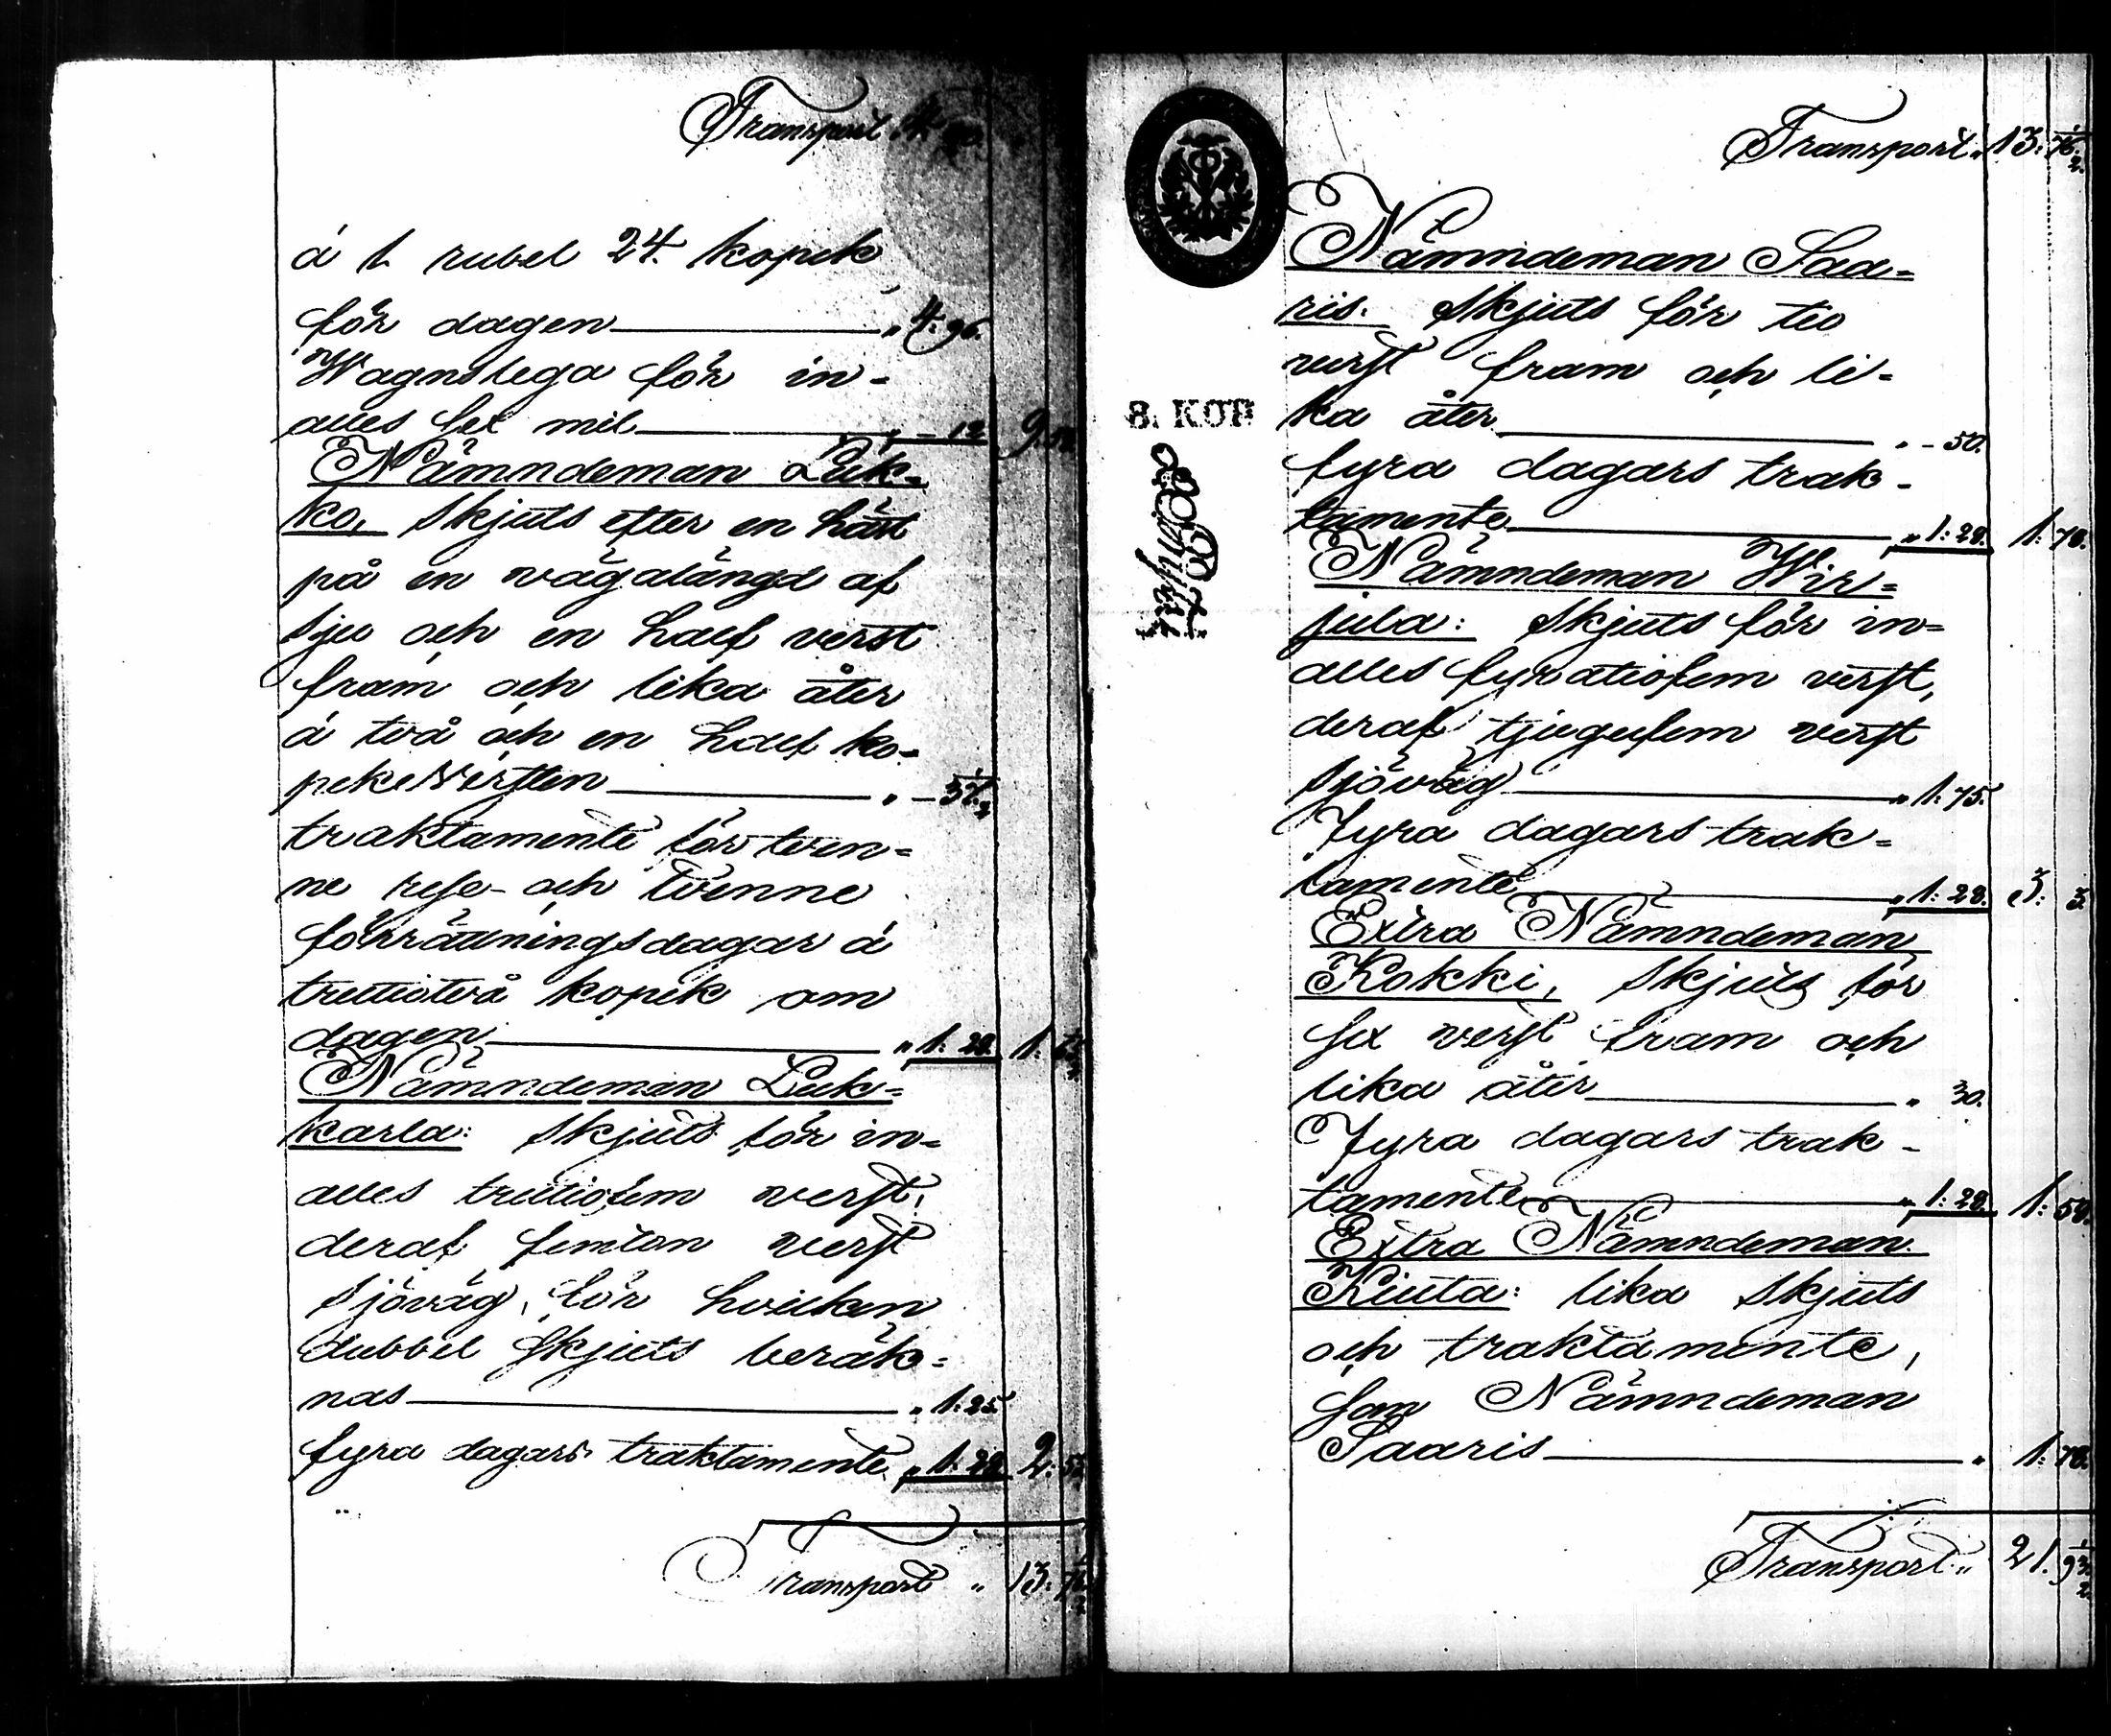 Transport 4.
á 1. rubel 24. kopek
för dagen " 4: 96.
Wagnslega för in=
alles sex mil " – 12. 9.
Nämndeman Luk=
ko, skjuts efter en häst
på en vägalängd af
sju och en half verst
fram och lika åter
á två och en half ko=
pek versten " – 37 1/2
traktamente för tven=
ne rese- och tvenne
förrättningsdagar á
trettiotvå kopek om
dagen " 1: 28. 1: 65 1/2
Nämndeman Luk=
karla: skjuts för in=
alles trettiofem verst,
deraf femton verst
sjöväg, för hvilken
dubbel skjuts beräk=
nas " 1: 25.
fyra dagars traktamente " 1: 28. 2: 53.
Transport " 13: 76 1/2
Transport " 13: 76 1/2
8. KOP.
Nämndeman Saa=
ris: skjuts för tio
verst fram och li=
ka åter " – 50.
fyra dagars trak=
tamente " 1: 28. 1: 78.
Nämndeman Wir=
jula: skjuts för in=
alles fyratiofem verst,
deraf tjugufem verst
sjöväg " 1: 75.
Fyra dagars trak=
tamente " 1: 28. 3: 3.
Extra Nämndeman
Kokki, skjuts för
sex verst fram och
lika åter " 30.
Fyra dagars trak=
tamente " 1: 28. 1: 58.
Extra Nämndeman
Kiuta: lika skjuts
och traktamente,
som Nämndeman
Saaris " 1: 78.
Transport " 21. 93 1/2